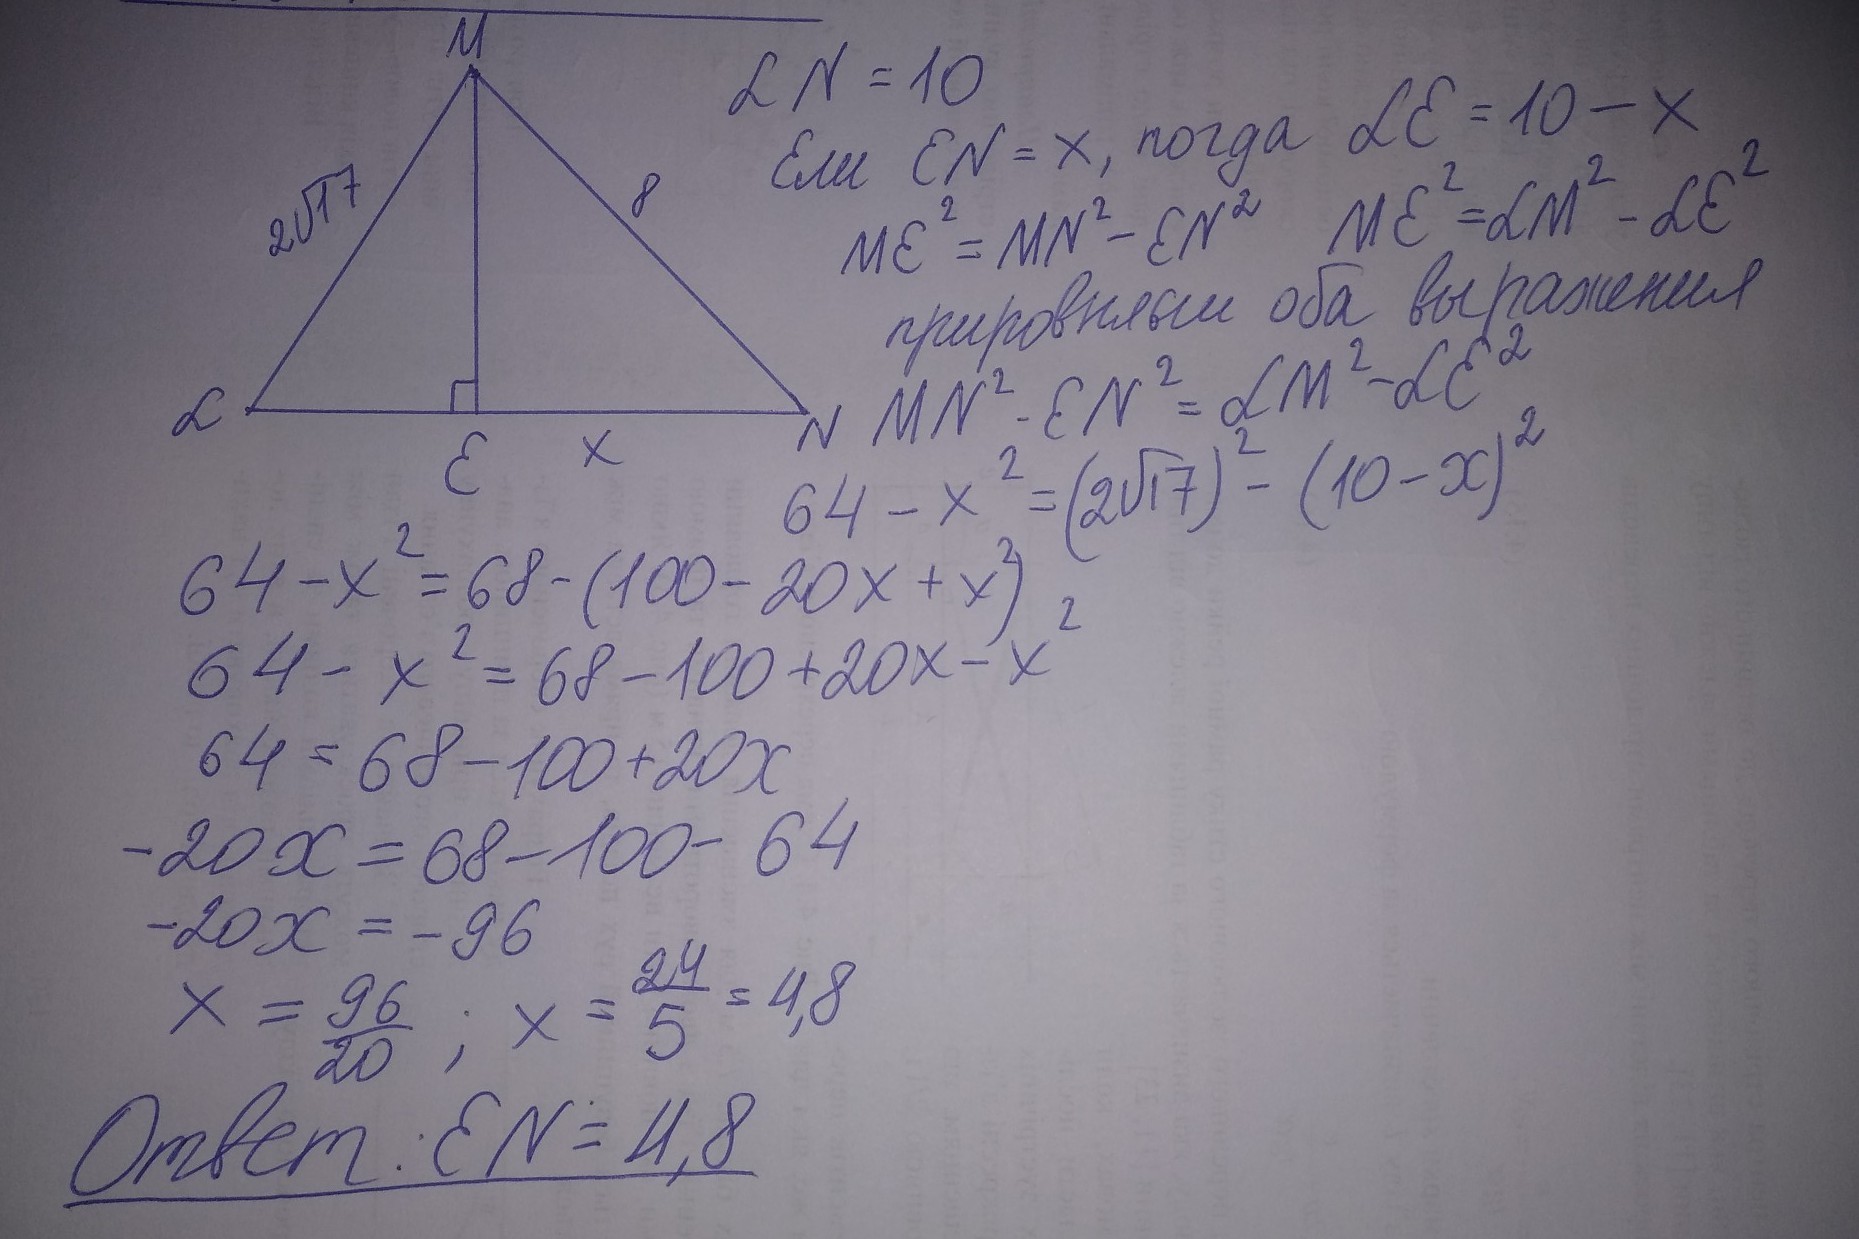 M
LN = 10
Если EN = x, тогда LE = 10 - x
2√17
8
ME² = MN² - EN² ME² = LM² - LE²
приравняем оба выражения
L
E
x
N
MN² - EN² = LM² - LE²
64 - x² = (2√17)² - (10 - x)²
64 - x² = 68 - (100 - 20x + x²)
64 - x² = 68 - 100 + 20x - x²
64 = 68 - 100 + 20x
-20x = 68 - 100 - 64
-20x = -96
x = 96/20 ; x = 24/5 = 4,8
Ответ: EN = 4,8